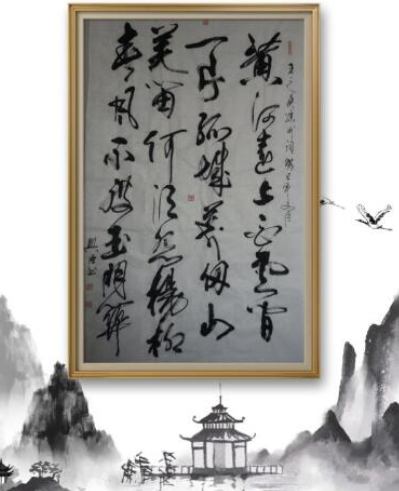 王之涣凉州词
黄河远上白云间
一片孤城万仞山
羌笛何须怨杨柳
春风不度玉门关